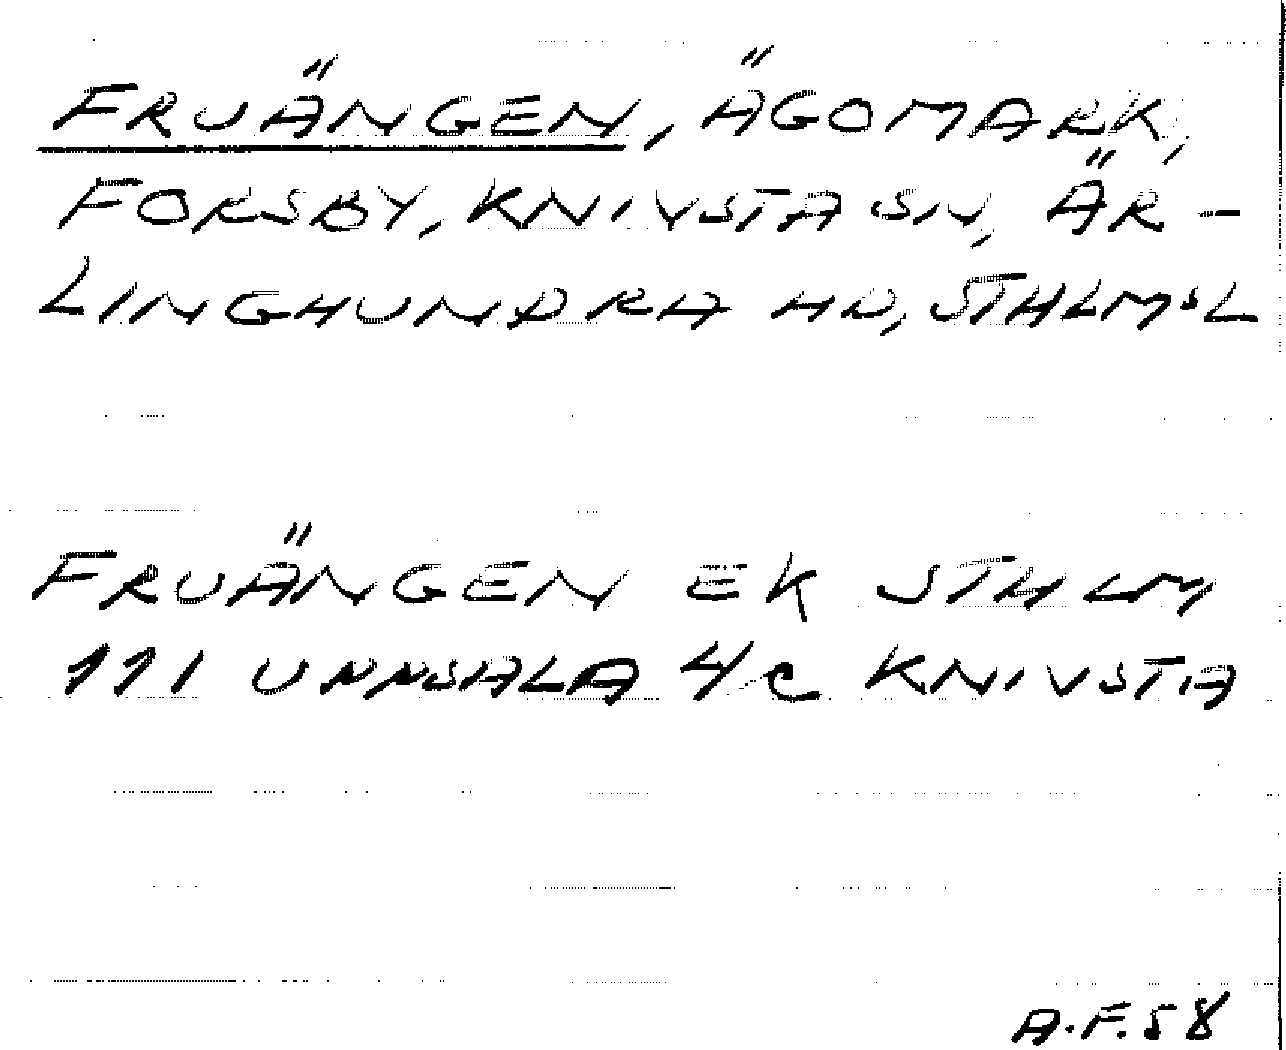 FRUÄNGEN, ÄGOMARK,
FORSBY, KNIVSTA SN, ÄR-
LINGHUNDRA HD, STHLMSL
FRUÄNGEN EK STHLM
111 UPPSALA 4/c KNIVSTA
A.F. 58